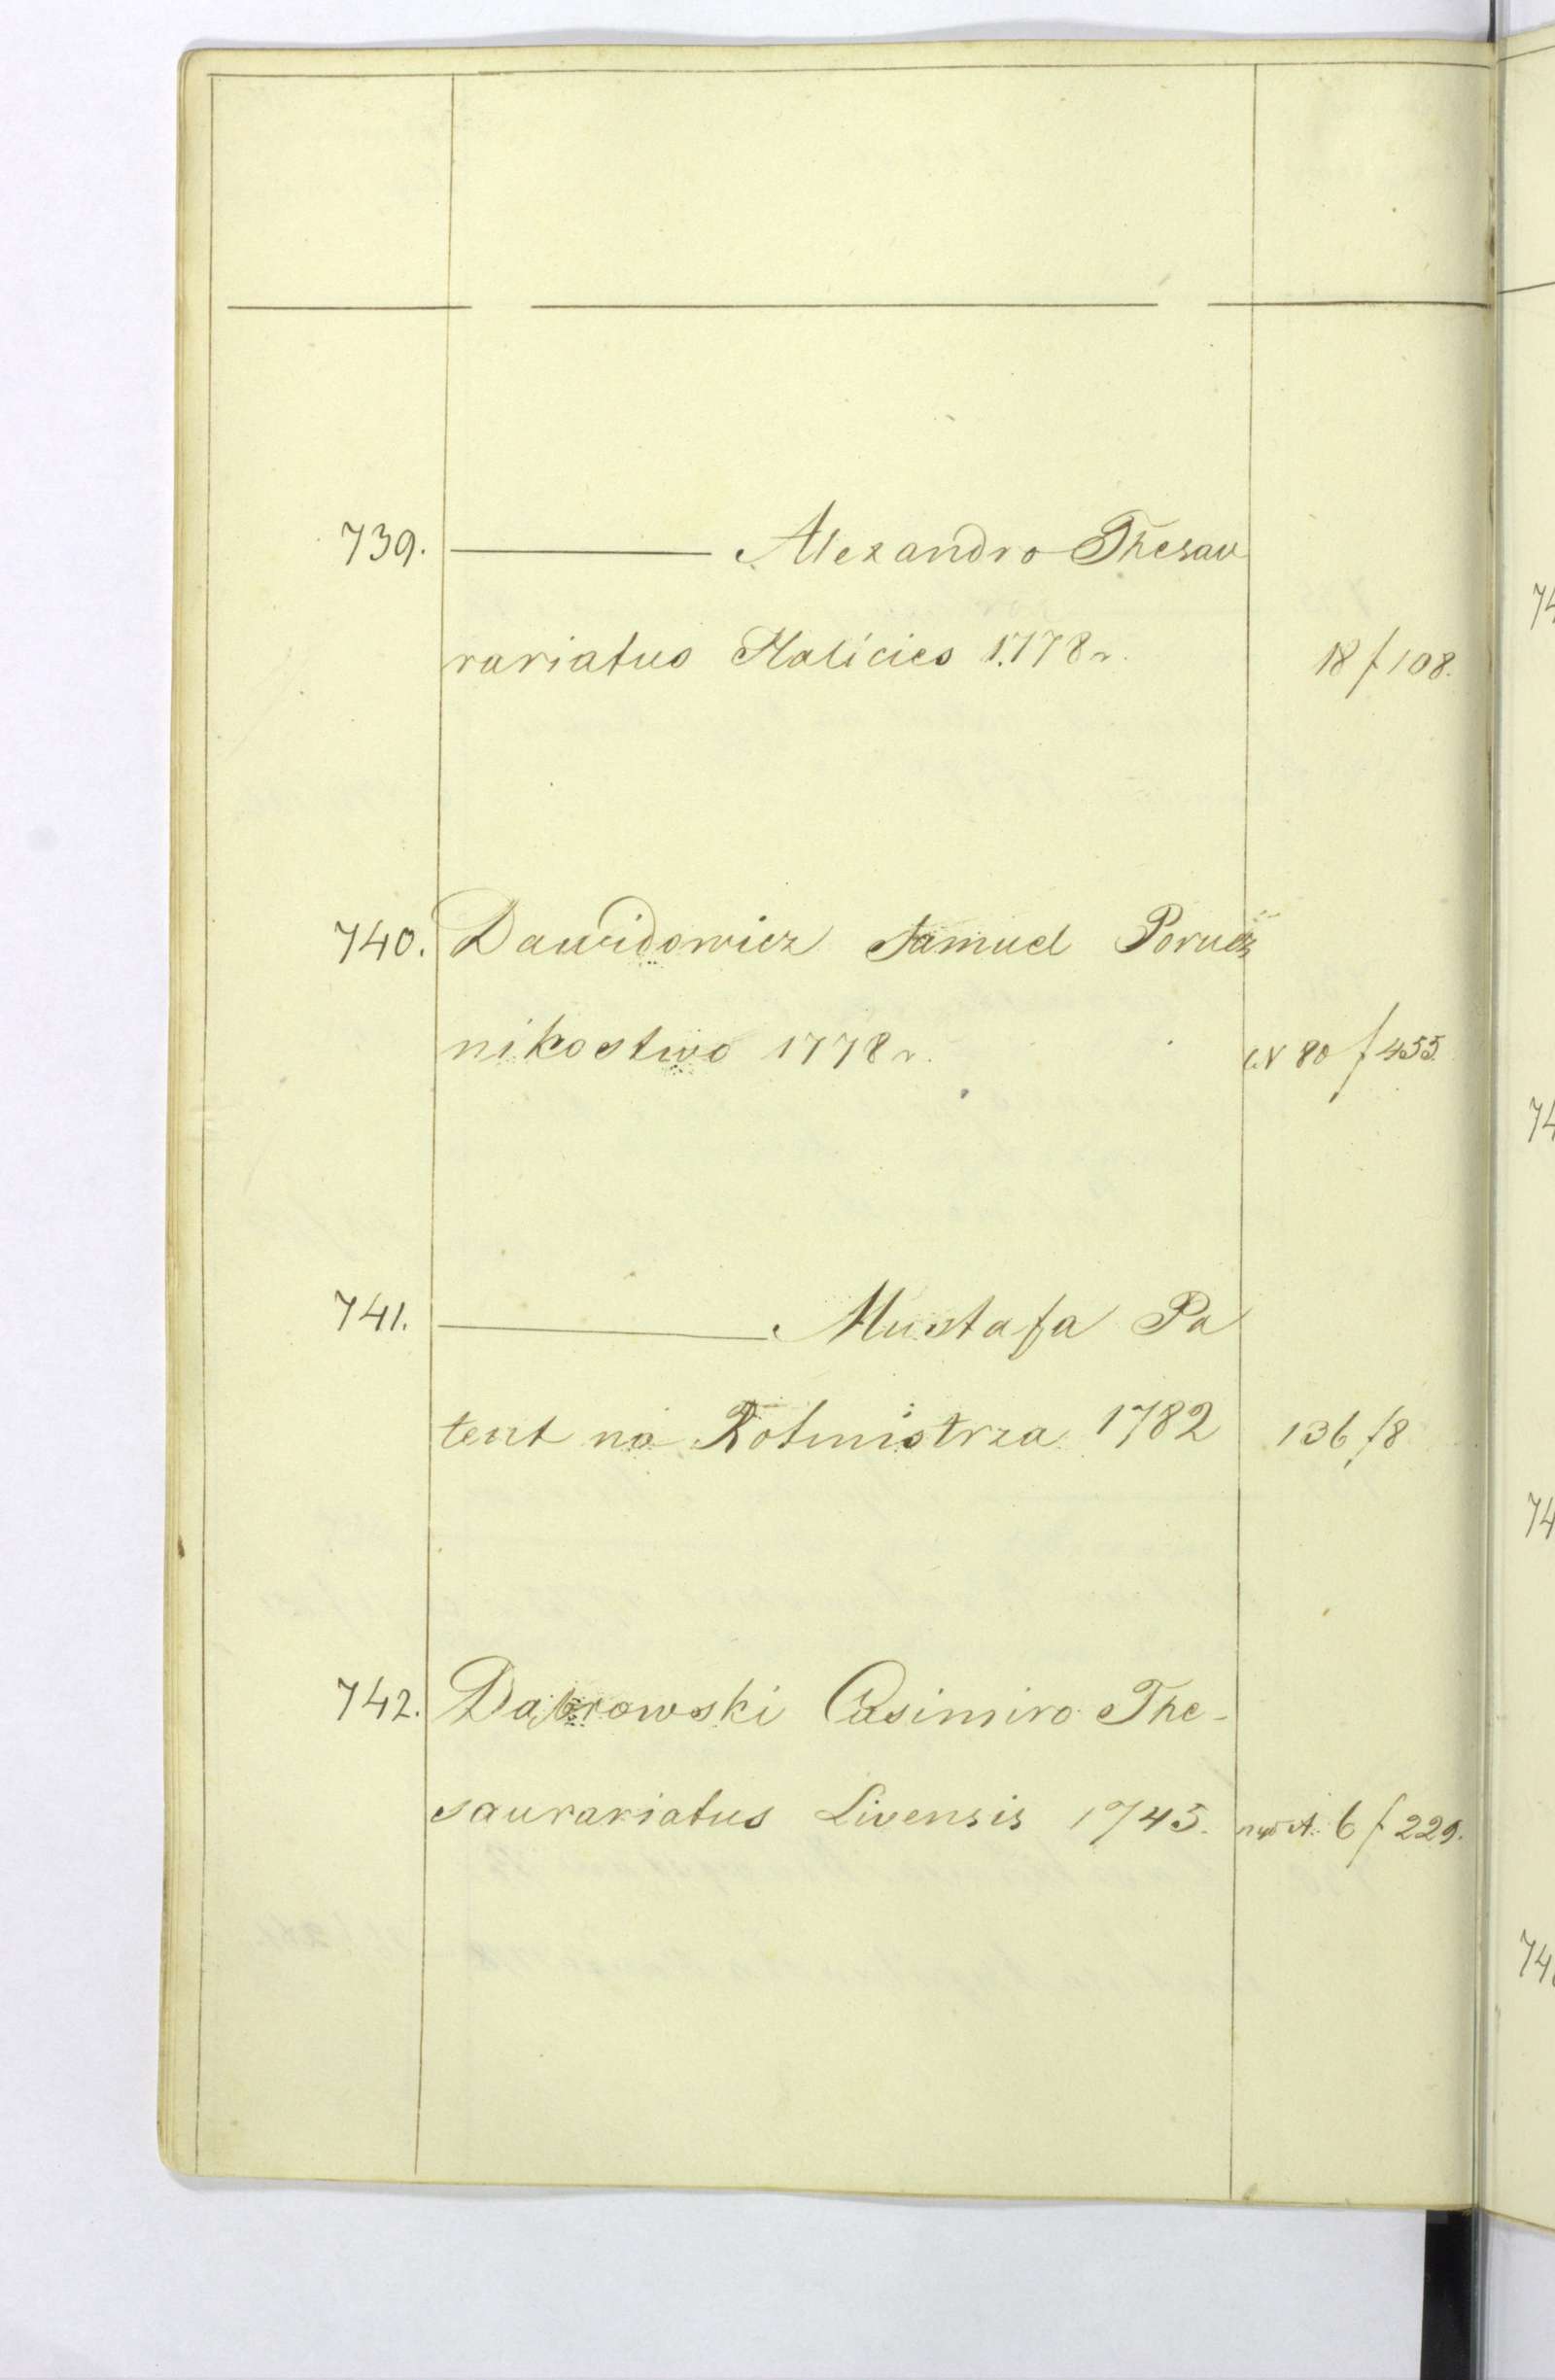 739. ——— Alexandro Thesau
rariatus Halicies 1778 r. 18 f 108.
740. Dawidowicz Samuel Porucz
nikostwo 1778 r. 80 f 455.
741. ——— Mustafa Pa
tent na Rotmistrza 1782 136 f 8
742. Dąbrowski Casimiro The-
saurariatus Livensis 1745. 6 f 229.